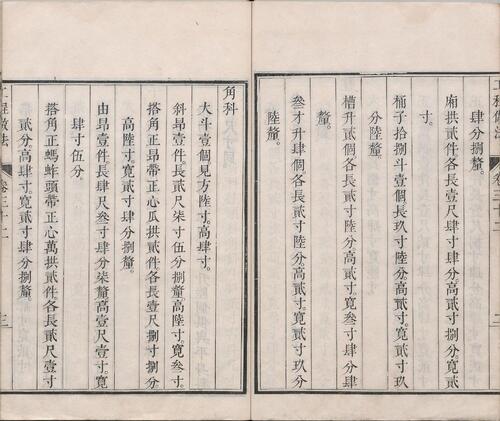 肆分捌釐。
廂拱貳個各長壹尺肆寸肆分高貳寸捌分寬貳
寸。
桶子拾捌斗壹個長玖寸陸分高貳寸。寬貳寸玖
分陸釐。
槽升貳個各長貳寸陸分高貳寸。寬叁寸肆分肆
釐。
叁才升肆個各長貳寸陸分高貳寸。寬貳寸玖分
陸釐。
工程做法
卷三十二
二
角科
大斗壹個見方陸寸。高肆寸。
斜昂壹件。長貳尺柒寸伍分捌釐。高陸寸。寬叁寸。
搭角正昂帶正心瓜拱貳件各長壹尺捌寸捌分
高陸寸寬貳寸肆分捌釐。
由昂壹件。長肆尺叁寸肆分柒釐高壹尺壹寸。寬
肆寸伍分
搭角正螞蚱頭帶正心萬拱貳件各長貳尺壹寸
貳分高肆寸。寬貳寸肆分捌釐。
工程做法
卷三十二
三